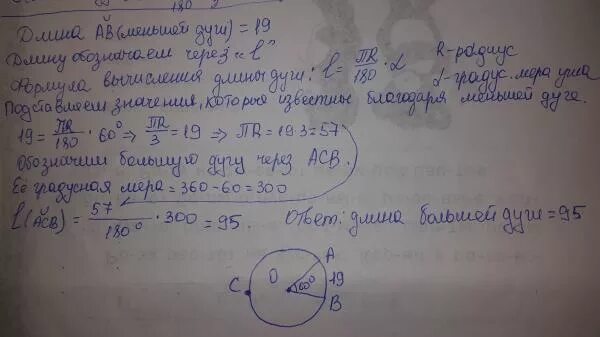 180
Длина A͝B (меньшей дуги) = 19
Длину обозначаем через "l"
Формула вычисления длины дуги: l = ПR/180 · α R - радиус
α - градус. мера угла
Подставляем значения, которые известны благодаря меньшей дуге.
19 = ПR/180 · 60° ⇒ ПR/3 = 19 ⇒ ПR = 19·3 = 57
Обозначим большую дугу через ACB.
Её градусная мера = 360 - 60 = 300
l (A͝CB) = 57/180° · 300 = 95. Ответ: длина большей дуги = 95
A
O
C 60° 19
B